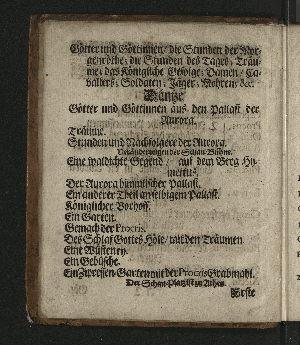 Götter und Göttinnen/ die Stunden der Mor-
genröthe/ die Stunden des Tages/ Träu-
me/ das Königliche Gefolge/ Damen/ Ca-
valliers/ Soldaten/ Jäger/ Mohren/ &c.
Däntze
Götter und Göttinnen aus den Pallast der
Aurora.
Träume.
Stunden und Nachfolgere der Aurora.
Veränderungen der Schau-Bühne.
Eine waldichte Gegend/ auf dem Berg Hy-
mettus.
Der Aurora himmlischer Pallast.
Ein anderer Theil an selbigem Pallast.
Königlicher Vorhoff.
Ein Garten.
Gemach der Procris.
Des Schlaf Gottes Höle/ mit den Träumen
Eine Wüsteney.
Ein Gebüsche.
Ein Zypressen-Garten mit der Procris Grabmahl.
Der Schau-Platz ist zu Athen.
Erste